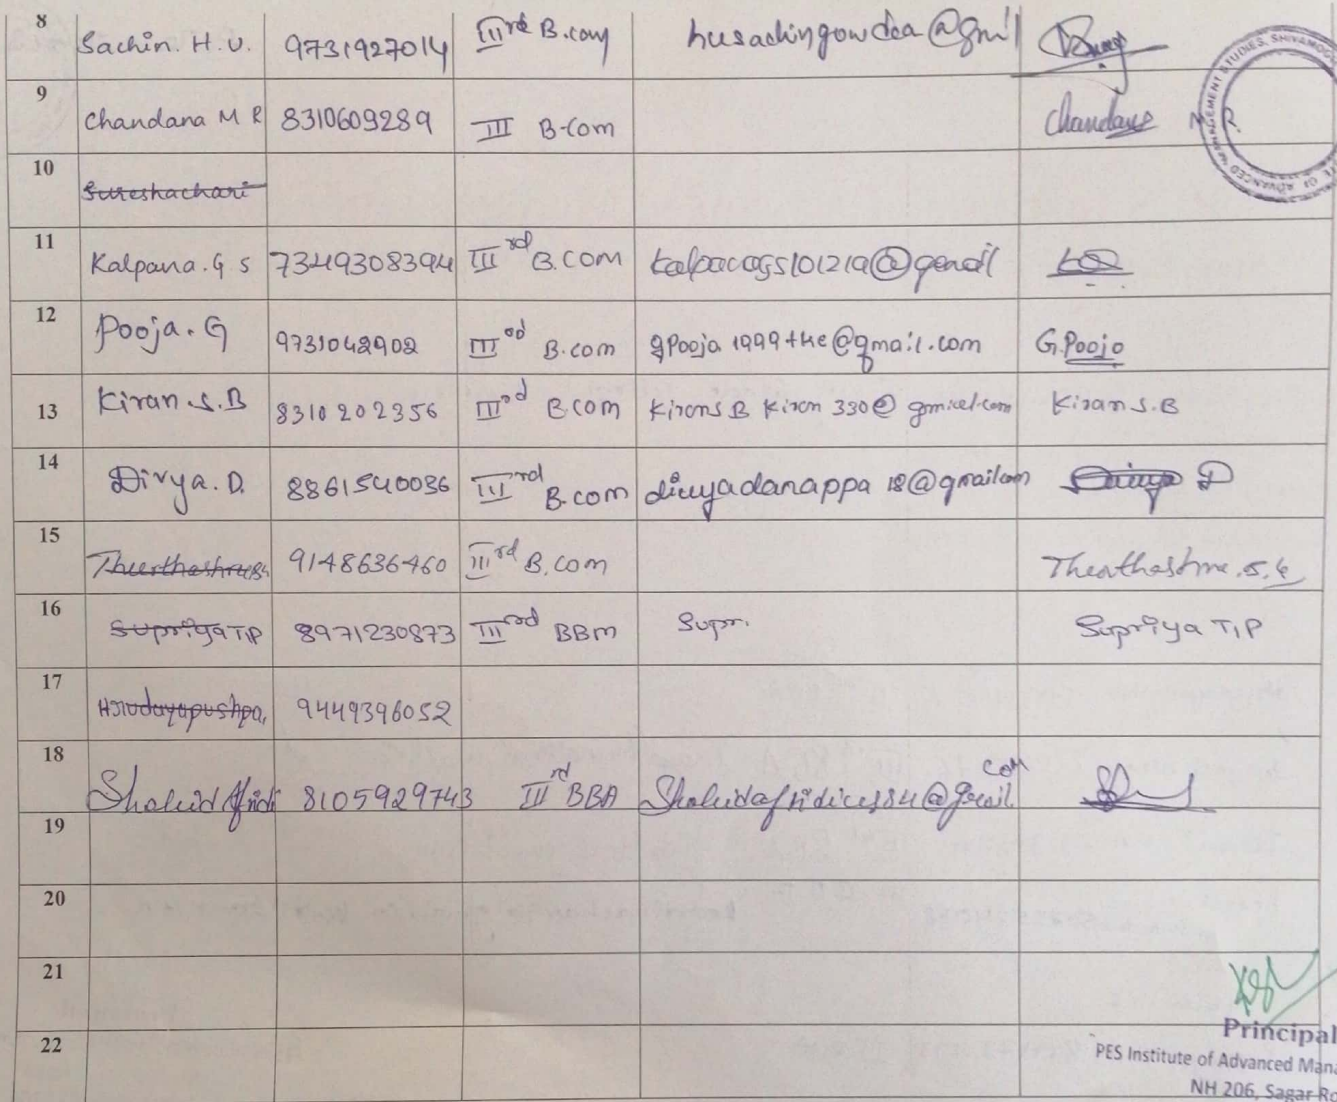 8 Sachin. H.U. 9731927014 IIIrd B.com husachingowdaa@gmil
9 Chandana M R 8310609289 III B-Com Chandana M R
10 Sureshachari
11 Kalpana. G S 7349308394 IIIrd B.COM @gmail
12 Pooja. G 9731042902 IIIrd B.com gpooja1999the@gmail.com G.Pooja
13 Kiran.S.B 8310202356 IIIrd B.COM KiransB Kiran 330@ gmicel.com Kiran S.B
14 Divya. D. 8861540036 IIIrd B.com divyadanappa 18@gmailcom D
15 9148636460 IIIrd B.com
16 Supriya T.P 8971230873 IIIrd BBM Supr. Supriya T.P
17 Hrudayapushpa, 9449396052
18 Shahid Afridi 8105929743 IIIrd BBA com
19
20
21
22
MANAGEMENT STUDIES, SHIVAMOG
TE OF ADVANCED
Principal
PES Institute of Advanced Mana
NH 206, Sagar Ro